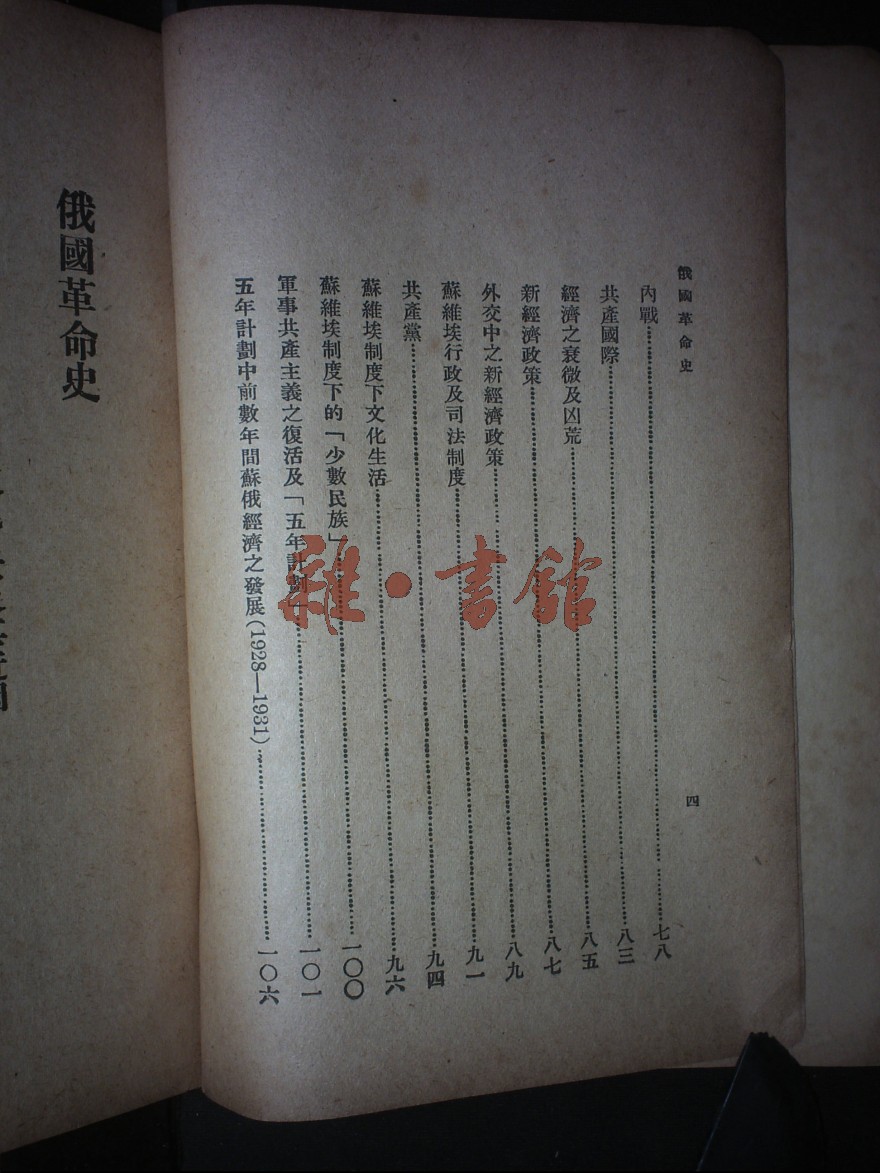 俄國革命史
四
內戰……七八
共產國際……八三
經濟之衰微及凶荒……八五
新經濟政策……八七
外交中之新經濟政策……八九
蘇維埃行政及司法制度……九一
共產黨……九四
蘇維埃制度下文化生活……九六
蘇維埃制度下的「少數民族」……一〇〇
軍事共產主義之復活及「五年計劃」……一〇一
五年計劃中前數年間蘇俄經濟之發展(1928—1931)……一〇六
俄國革命史
雜·書館